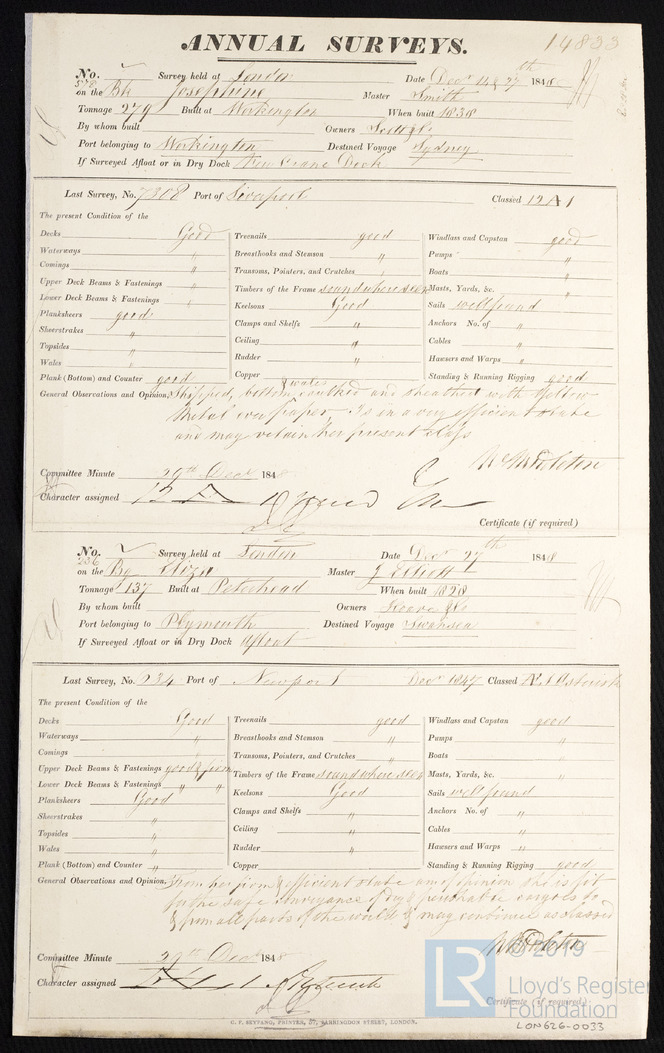 ANNUAL SURVEYS.
14833
No. Survey held at London Date Decr 14 & 27th 1848
578 on the Bk Josephine Master Smith
Tonnage 279 Built at Workington When built 1838
By whom built Owners Scott & Co
Port belonging to Workington Destined Voyage Sydney
If Surveyed Afloat or in Dry Dock Dock
Last Survey, No. 7308 Port of Liverpool Classed 12 A 1
The present Condition of the
Decks Good Treenails good Windlass and Capstan good
Waterways " Breasthooks and Stemson " Pumps "
Comings " Transoms, Pointers, and Crutches " Boats "
Upper Deck Beams & Fastenings " Timbers of the Frame sound where seen Masts, Yards, &c. "
Lower Deck Beams & Fastenings " Keelsons Good Sails well found
Planksheers good Clamps and Shelfs " Anchors No. of "
Sheerstrakes " Ceiling " Cables "
Topsides " Rudder " Hawsers and Warps "
Wales " Copper Standing & Running Rigging good
Plank (Bottom) and Counter good
General Observations and Opinion, Stripped, bottom & wales caulked and sheathed with yellow
metal over paper. Is in a very efficient state
and may retain her present class
Committee Minute 29th Decr 1848
Character assigned 12 A 1
Certificate (if required)
No. Survey held at London Date Decr 27th 1848
236 on the Bg Eliza Master J Elliott
Tonnage 137 Built at Peterhead When built 1828
By whom built Owners & Co
Port belonging to Plymouth Destined Voyage Swansea
If Surveyed Afloat or in Dry Dock Afloat
Last Survey, No. 234 Port of Newport Decr 1847 Classed Æ 1 Asterisk
The present Condition of the
Decks Good Treenails good Windlass and Capstan good
Waterways " Breasthooks and Stemson " Pumps "
Comings " Transoms, Pointers, and Crutches " Boats "
Upper Deck Beams & Fastenings good & firm Timbers of the Frame sound where seen Masts, Yards, &c. "
Lower Deck Beams & Fastenings " " Keelsons Good Sails well found
Planksheers Good Clamps and Shelfs " Anchors No. of "
Sheerstrakes " Ceiling " Cables "
Topsides " Rudder " Hawsers and Warps "
Wales " Copper Standing & Running Rigging good
Plank (Bottom) and Counter "
General Observations and Opinion, From her firm & efficient state am of opinion she is fit
for the safe conveyance of dry & perishable cargoes to
& from all parts of the world & may continue as classed
Committee Minute 29th Decr 1848
Character assigned
Certificate (if required)
C. F. SEYFANG, PRINTER, 57, FARRINGDON STREET, LONDON.
LR © 2019
Lloyd's Register
Foundation
LON626-0033